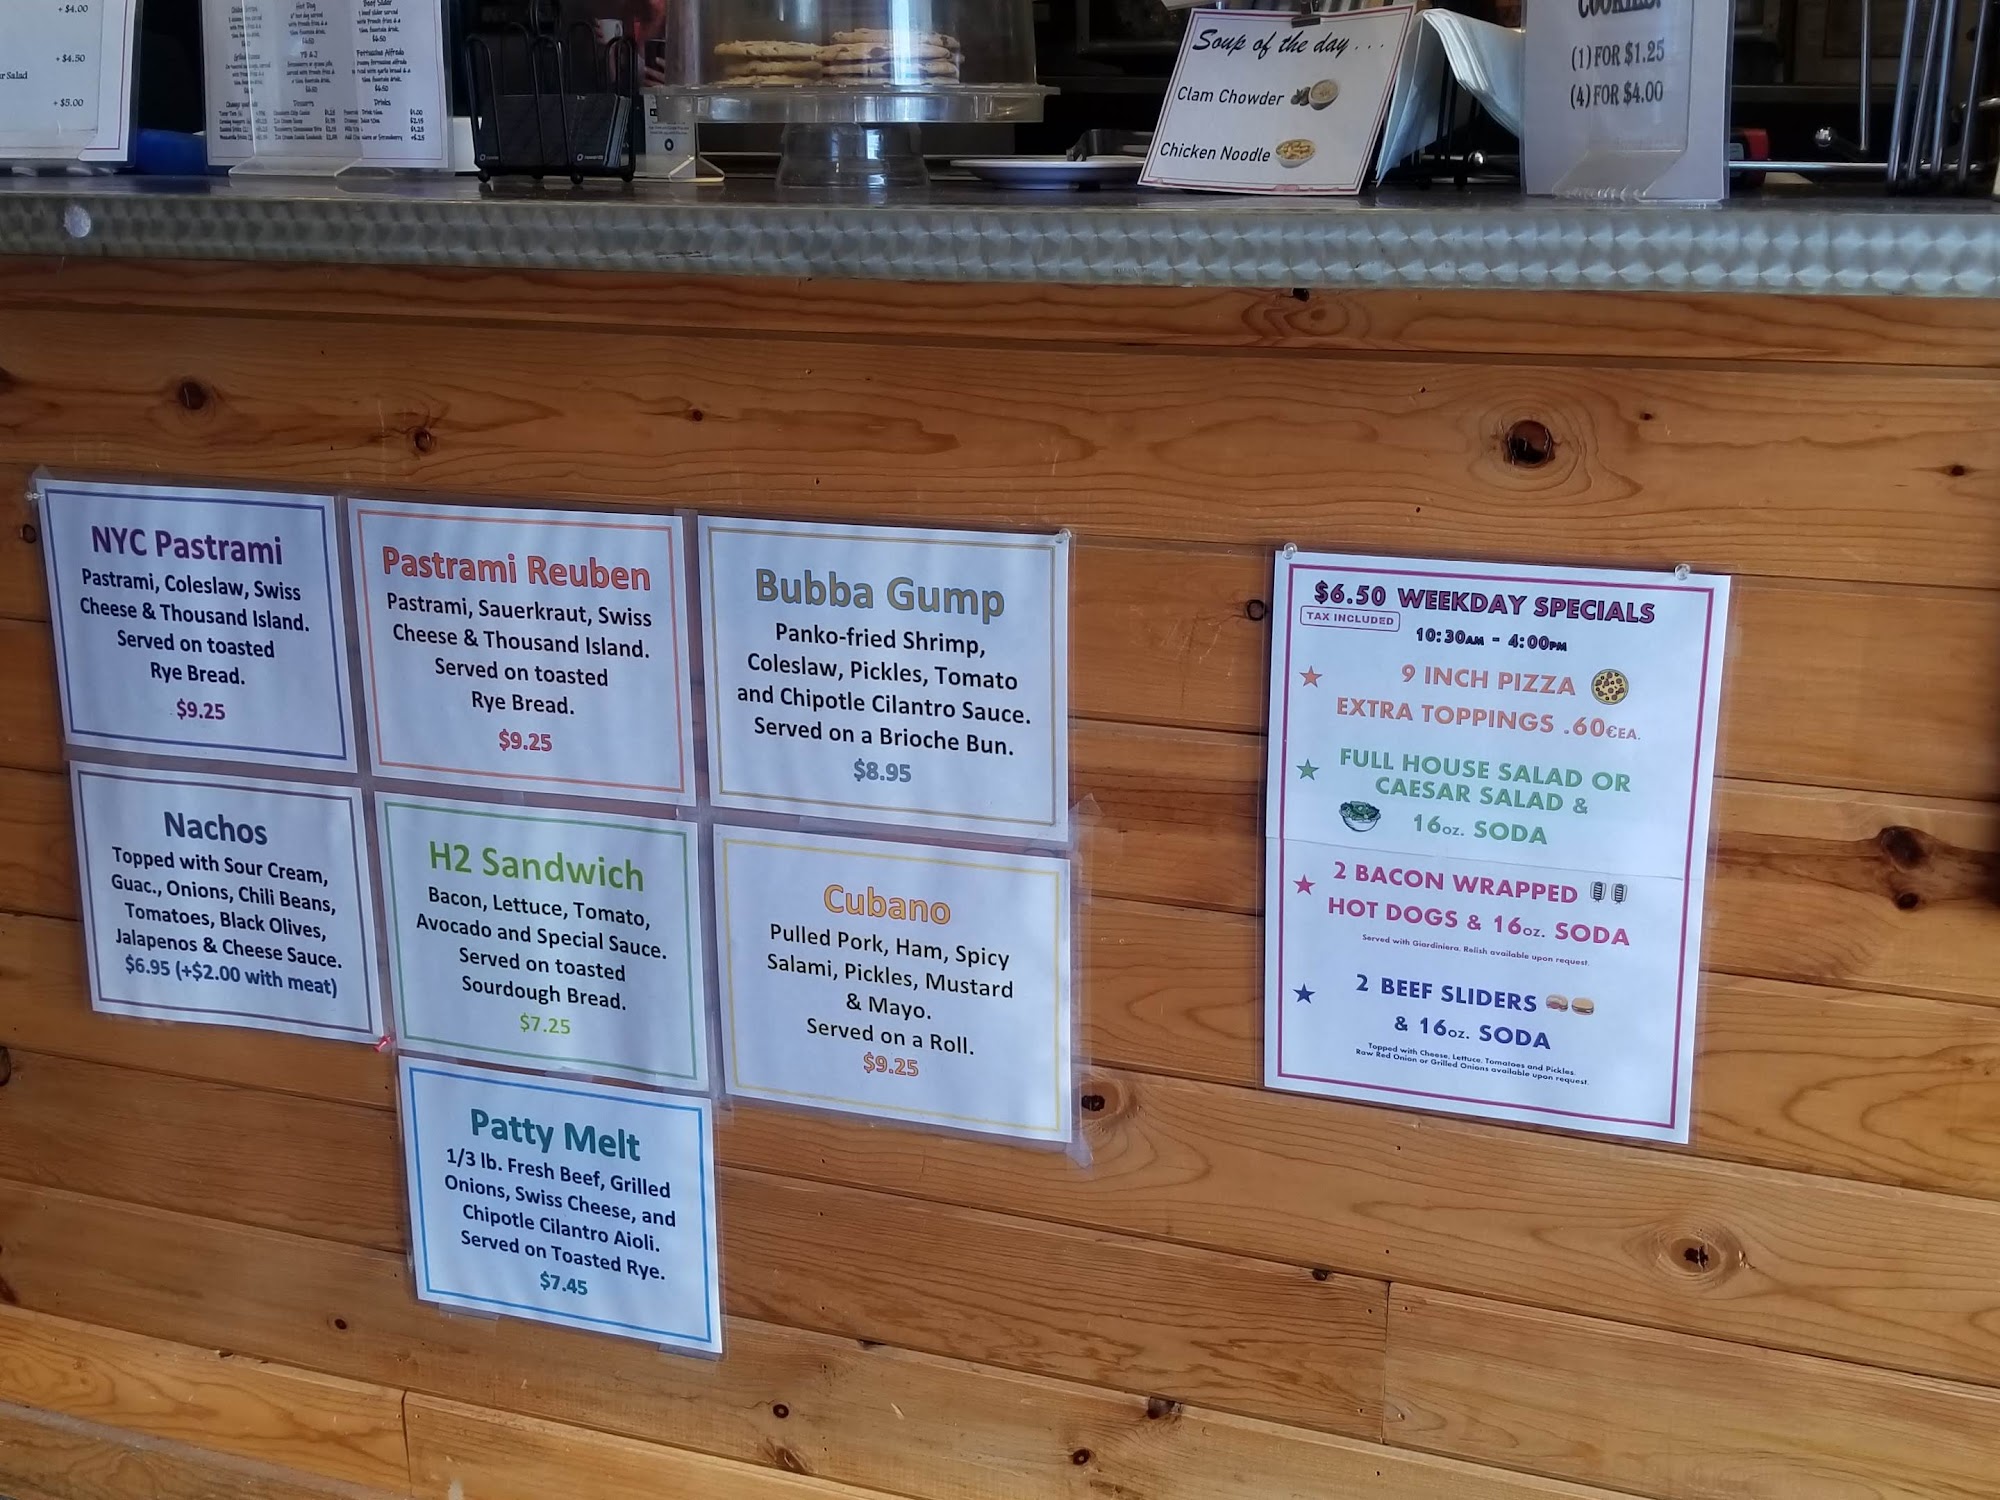 + $4.00
+ $4.50
r Salad
+ $5.00
Hot Dog
with French fries & a
$6.50
PB & J
$6.50
Beef Slider
1 beef slider served
with French fries & a
$6.50
Fettuccine Alfredo
$6.50
Desserts
Drinks
Soup of the day...
Clam Chowder
Chicken Noodle
COOKIES!
(1) FOR $1.25
(4) FOR $4.00
NYC Pastrami
Pastrami, Coleslaw, Swiss
Cheese & Thousand Island.
Served on toasted
Rye Bread.
$9.25
Pastrami Reuben
Pastrami, Sauerkraut, Swiss
Cheese & Thousand Island.
Served on toasted
Rye Bread.
$9.25
Bubba Gump
Panko-fried Shrimp,
Coleslaw, Pickles, Tomato
and Chipotle Cilantro Sauce.
Served on a Brioche Bun.
$8.95
Nachos
Topped with Sour Cream,
Guac., Onions, Chili Beans,
Tomatoes, Black Olives,
Jalapenos & Cheese Sauce.
$6.95 (+$2.00 with meat)
H2 Sandwich
Bacon, Lettuce, Tomato,
Avocado and Special Sauce.
Served on toasted
Sourdough Bread.
$7.25
Cubano
Pulled Pork, Ham, Spicy
Salami, Pickles, Mustard
& Mayo.
Served on a Roll.
$9.25
Patty Melt
1/3 lb. Fresh Beef, Grilled
Onions, Swiss Cheese, and
Chipotle Cilantro Aioli.
Served on Toasted Rye.
$7.45
$6.50 WEEKDAY SPECIALS
TAX INCLUDED
10:30AM - 4:00PM
9 INCH PIZZA
EXTRA TOPPINGS .60¢EA.
FULL HOUSE SALAD OR
CAESAR SALAD &
16oz. SODA
2 BACON WRAPPED
HOT DOGS & 16oz. SODA
Served with Giardiniera. Relish available upon request.
2 BEEF SLIDERS
& 16oz. SODA
Topped with Cheese, Lettuce, Tomatoes and Pickles.
Raw Red Onion or Grilled Onions available upon request.